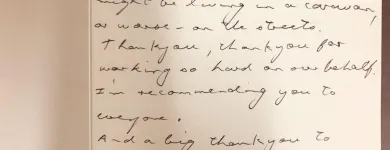 might be living in a caravan,
or worse - on the streets.
Thankyou, thankyou for
working so hard on our behalf.
I'm recommending you to
everyone.
And a big thankyou to